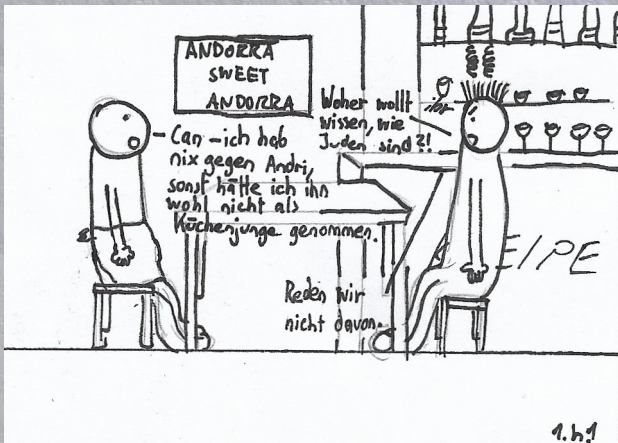 ANDORRA
SWEET
ANDORRA
Can - ich hab
nix gegen Andri,
sonst hätte ich ihn
wohl nicht als
Küchenjunge genommen.
Woher wollt
ihr
wissen, wie
Juden sind?!
Reden wir
nicht davon.
EIPE
1.b.1